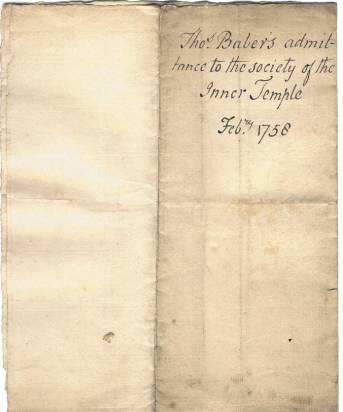 Thos. Baber's admit-
tance to the society of the
Inner Temple
Feb.ry 1758